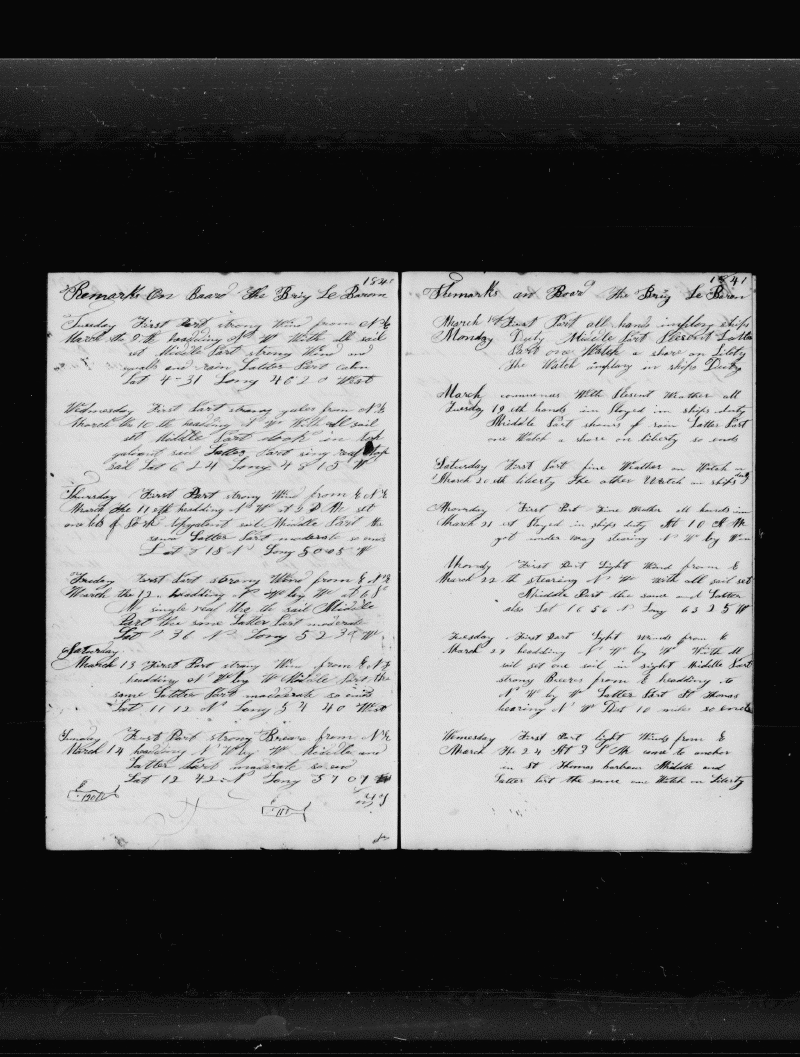 1841
Remarks On Board the Brig Le Baron
Tuesday First Part strong Wind from N E
March the 9 th heading N W With all sail
set Middle Part strong Wind and
squals and rain Latter Part calm
Lat 4-31 Long 46 20 West
Wednesday First Part strong gales from N E
March the 10 th heading N W With all sail
set Middle Part took in top
galvant sail Latter Part sing reef
sail Lat 6 24 Long 48 15 W
Thursday First Part strong Wind from E N E
March the 11 eth heading N W at 2 P M set
topgalant sail Middle Part the
same Latter Part moderate so ends
Lat 8 18 N Long 50 05 W
on Friday First Part strong Wind from E N E
March the 12 heading N W by W at 6
M single reef the sail Middle
Part the same Latter Part moderate
Lat 9 36 N Long 52 30 W
Saturday
March 13 First Part strong Win from E N E
heading N W by W Middle Part the
same Latter Part moaderate so ends
Lat 11 12 N Long 54 40 West
Sunday First Part strong Brease from N E
March 14 heading N W by W Middle and
Latter Part moderate so end
Lat 12 42 N Long 57 07 W
1841
Remarks on Board the Brig Le Baron
March First Part all hands imploy ships
Monday Duty Middle Part Plesent Latter
Part one Watch a shore on Libty
the Watch imploy on ships Duty
March commences With Plesent Weather all
Tuesday 19 eth hands im ployed im ships duty
Middle Part shours of rain Latter Part
one Watch a shore on liberty so ends
Saturday First Part fine Weather on Watch on
March 20 eth liberty the other Watch on ships duty
Monday First Part Fine Wether all hands im
March 21 st ployed in ships duty At 10 A M
got under way stearing N W by W
Monday First Part Light Wind from E
March 22 th stearing N W with all sail set
Middle Part the same and Latter
also Lat 16 56 N Long 63 25 W
Tuesday First Part Light Winds from E
March 23 heading N W by W With all
sail set one sail in sight Middle Part
strong Breeses from E heading to
N W by W Latter Part St Thomas
bearing N W Dist 10 miles so ends
Wensday First Part light Winds from E
March the 24 At 3 P M came to anchor
in St Thomas harbour Middle and
Latter Part the same one Watch on Liberty